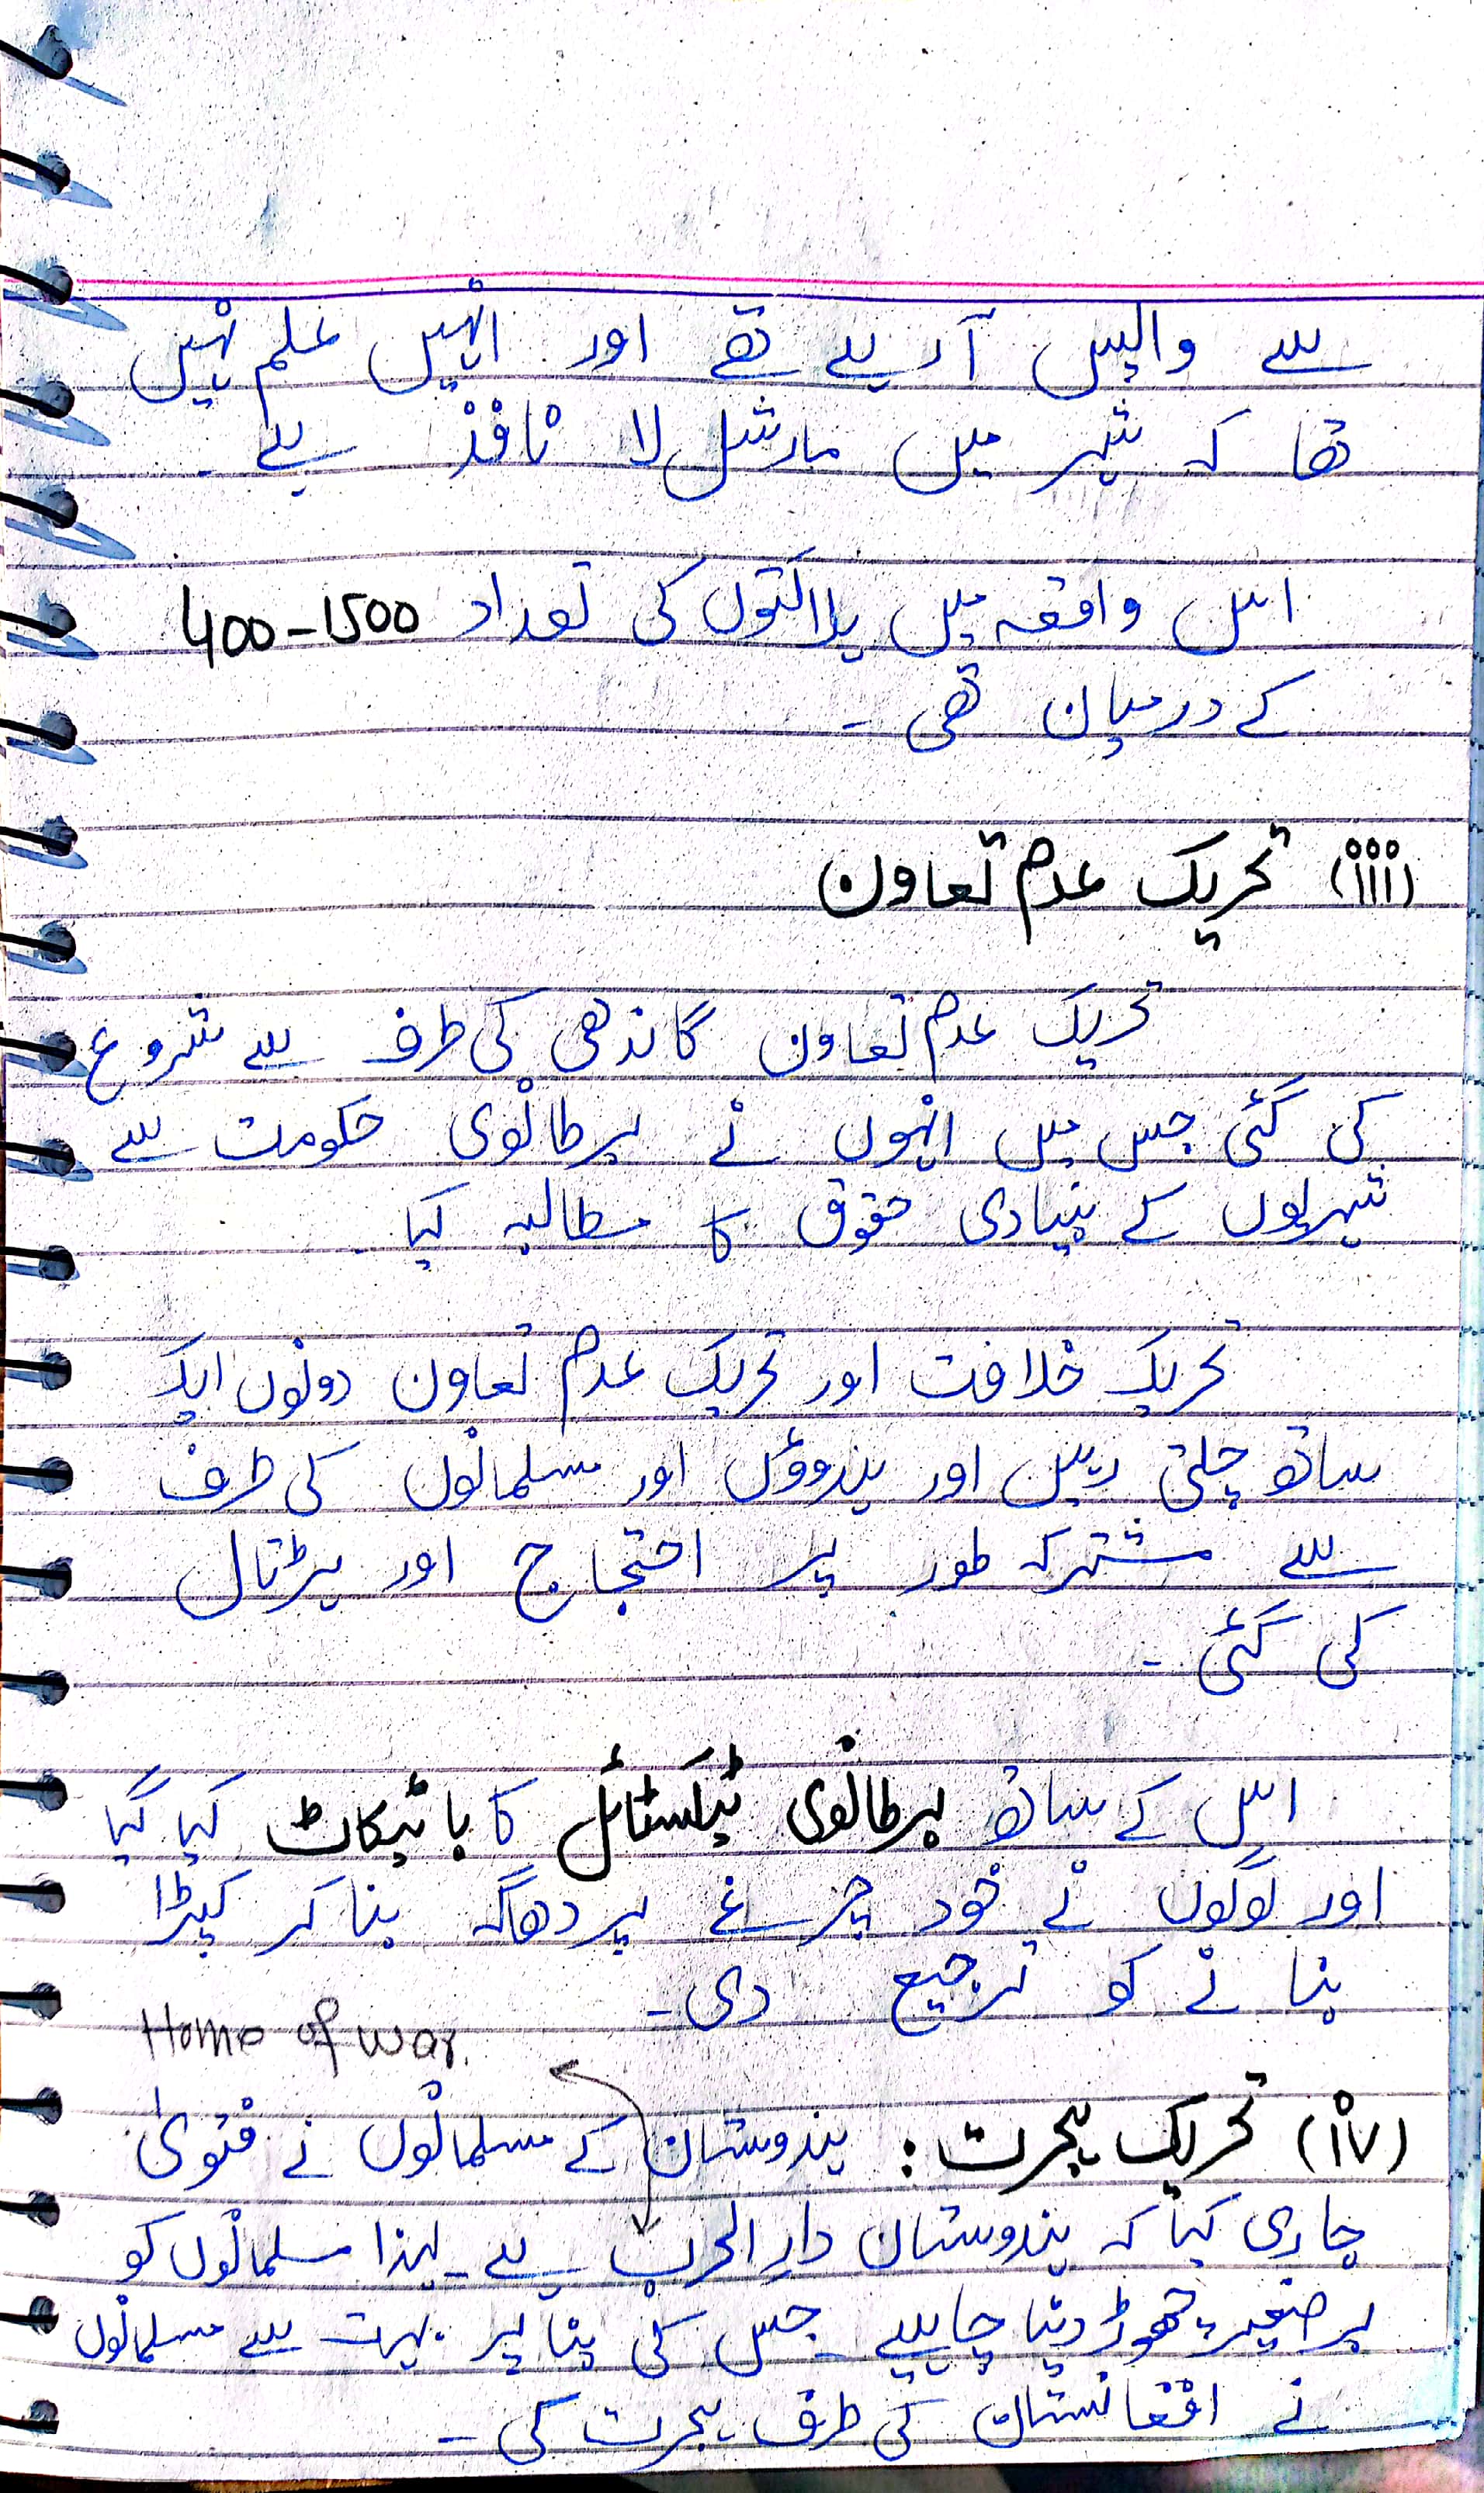 سے واپس آ رہے تھے اور انہیں علم نہیں
تھا کہ شہر میں مارشل لا نافذ ہے۔
اس واقعہ میں ہلاکتوں کی تعداد 400-1500
کے درمیان تھی۔
(iii) تحریک عدم تعاون
تحریک عدم تعاون گاندھی کی طرف سے شروع
کی گئی جس میں انہوں نے برطانوی حکومت سے
شہریوں کے بنیادی حقوق کا مطالبہ کیا۔
تحریک خلافت اور تحریک عدم تعاون دونوں ایک
ساتھ چلتی رہیں اور ہندووؤں اور مسلمانوں کی طرف
سے مشترکہ طور پر احتجاج اور ہڑتال
کی گئی۔
اس کے ساتھ برطانوی ٹیکسٹائل کا بائیکاٹ کیا گیا
اور لوگوں نے خود چرغے پر دھاگہ بنا کر کپڑا
بنانے کو ترجیع دی۔
Home of war.
(iv) تحریک ہجرت: ہندوستان کے مسلمانوں نے فتویٰ
جاری کیا کہ ہندوستان دار الحرب ہے۔ لہذا مسلمانوں کو
برصغیر چھوڑ دینا چاہیے۔ جس کی بنا پر بہت سے مسلمانوں
نے افغانستان کی طرف ہجرت کی۔